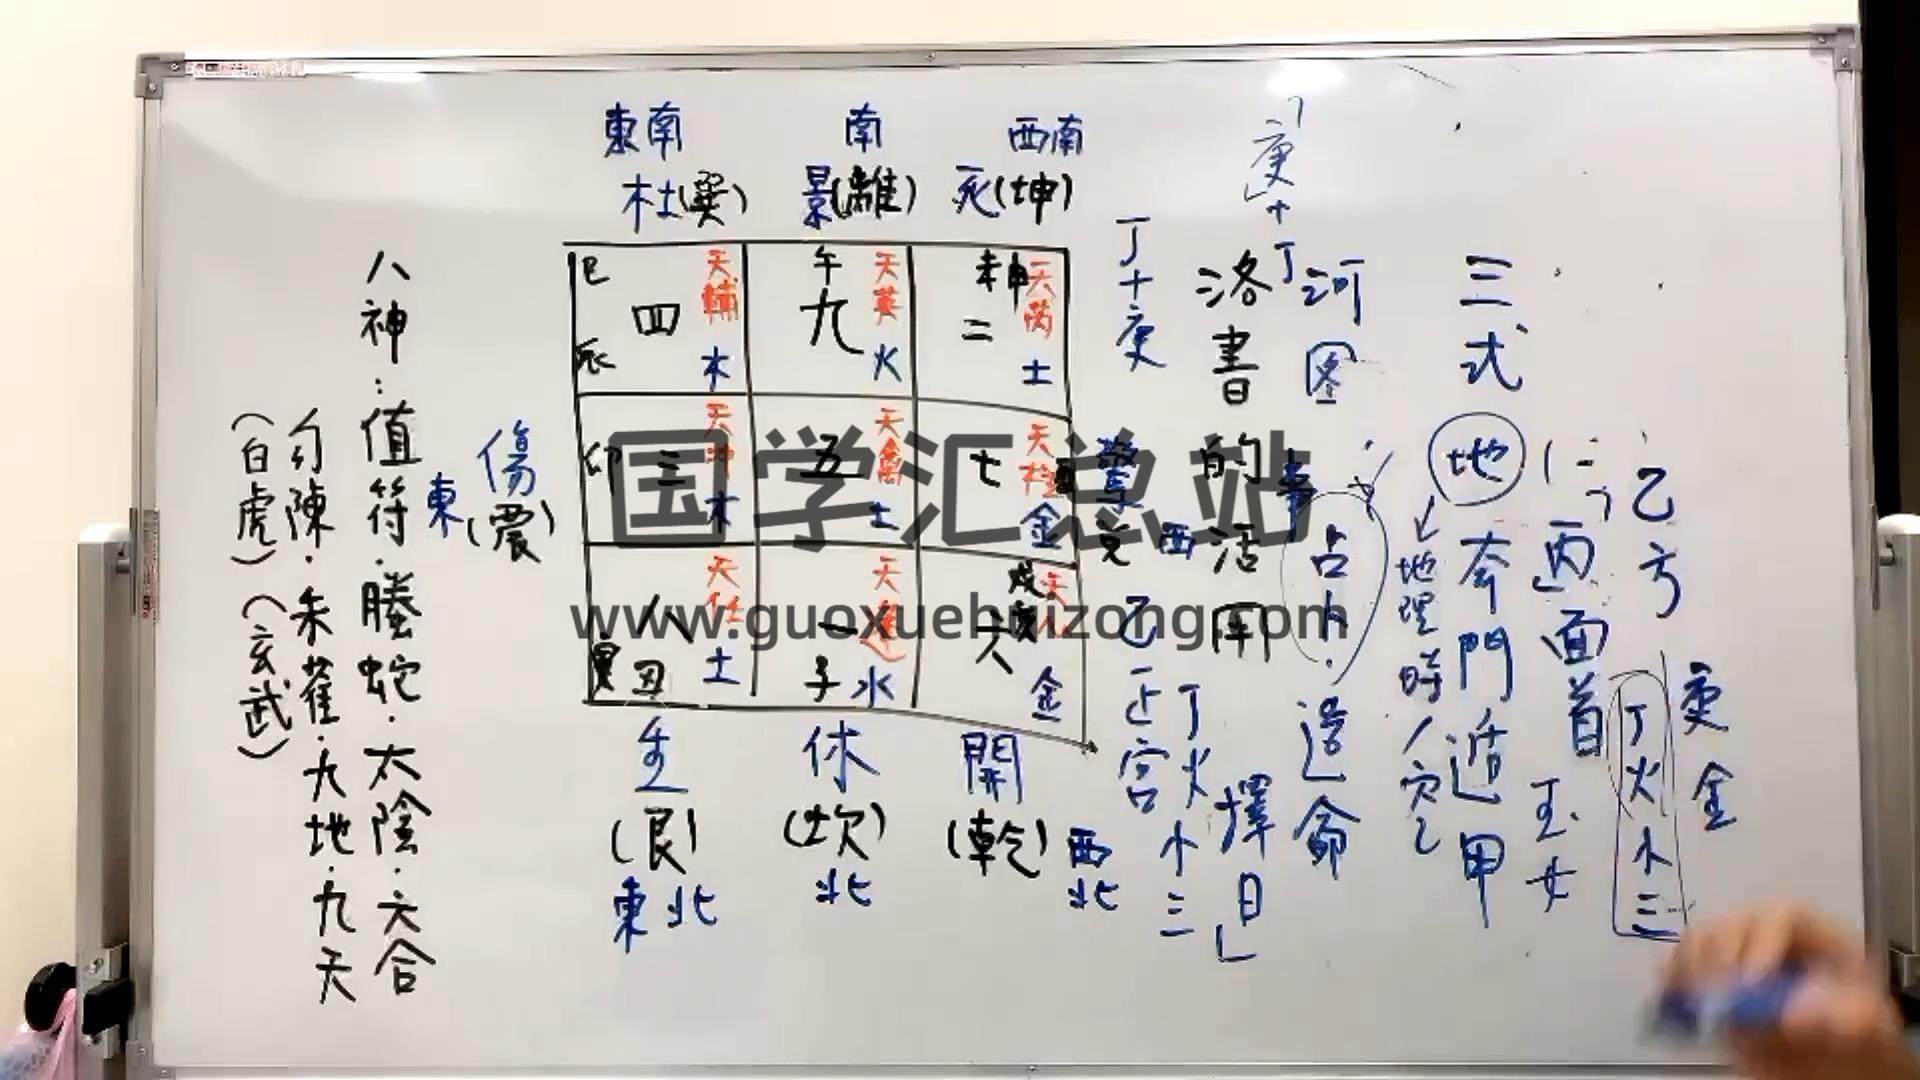 東南
南
西南
杜(巽)
景(離)
死(坤)
巳
辰
四
天輔
木
午
九
天英
火
未申
二
天芮
土
卯
三
天冲
木
五
天禽
土
七
天柱
金
寅
丑
八
天任
土
一
子
水
六
金
傷
(震)
東
驚
西
生
(艮)
東北
休
(坎)
北
開
(乾)
西北
八神：值符·螣蛇·太陰·六合
勾陳·朱雀·九地·九天
(白虎)(玄武)
三式
地
奇門遁甲
地理時
「庚」+丁
河図
占卜·造命
洛書的活用
擇日」
丁+庚
乙正宮
丁火小三
「丙」面首
玉女
乙方
丁火小三
庚金
国学汇总站
www.guoxuehuizong.com